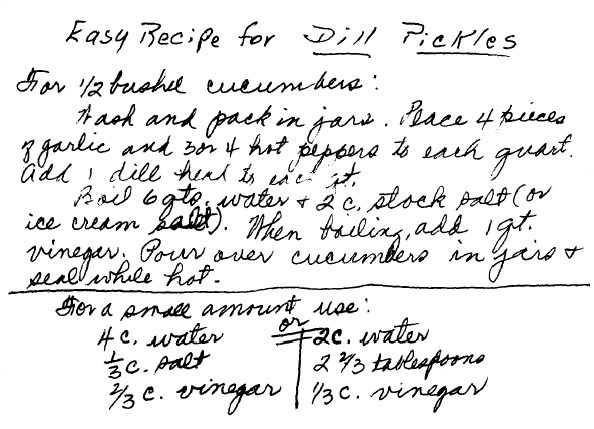 Easy Recipe for Dill Pickles
For 1/2 bushel cucumbers:
Wash and pack in jars. Place 4 pieces
of garlic and 3 or 4 hot peppers to each quart.
Add 1 dill head to each qt.
Boil 6 qts. water + 2 c. stock salt (or
ice cream salt). When boiling, add 1 qt.
vinegar. Pour over cucumbers in jars +
seal while hot.
For a small amount use:
or
4 c. water 2 c. water
1/3 c. salt 2 2/3 tablespoons
2/3 c. vinegar 1/3 c. vinegar